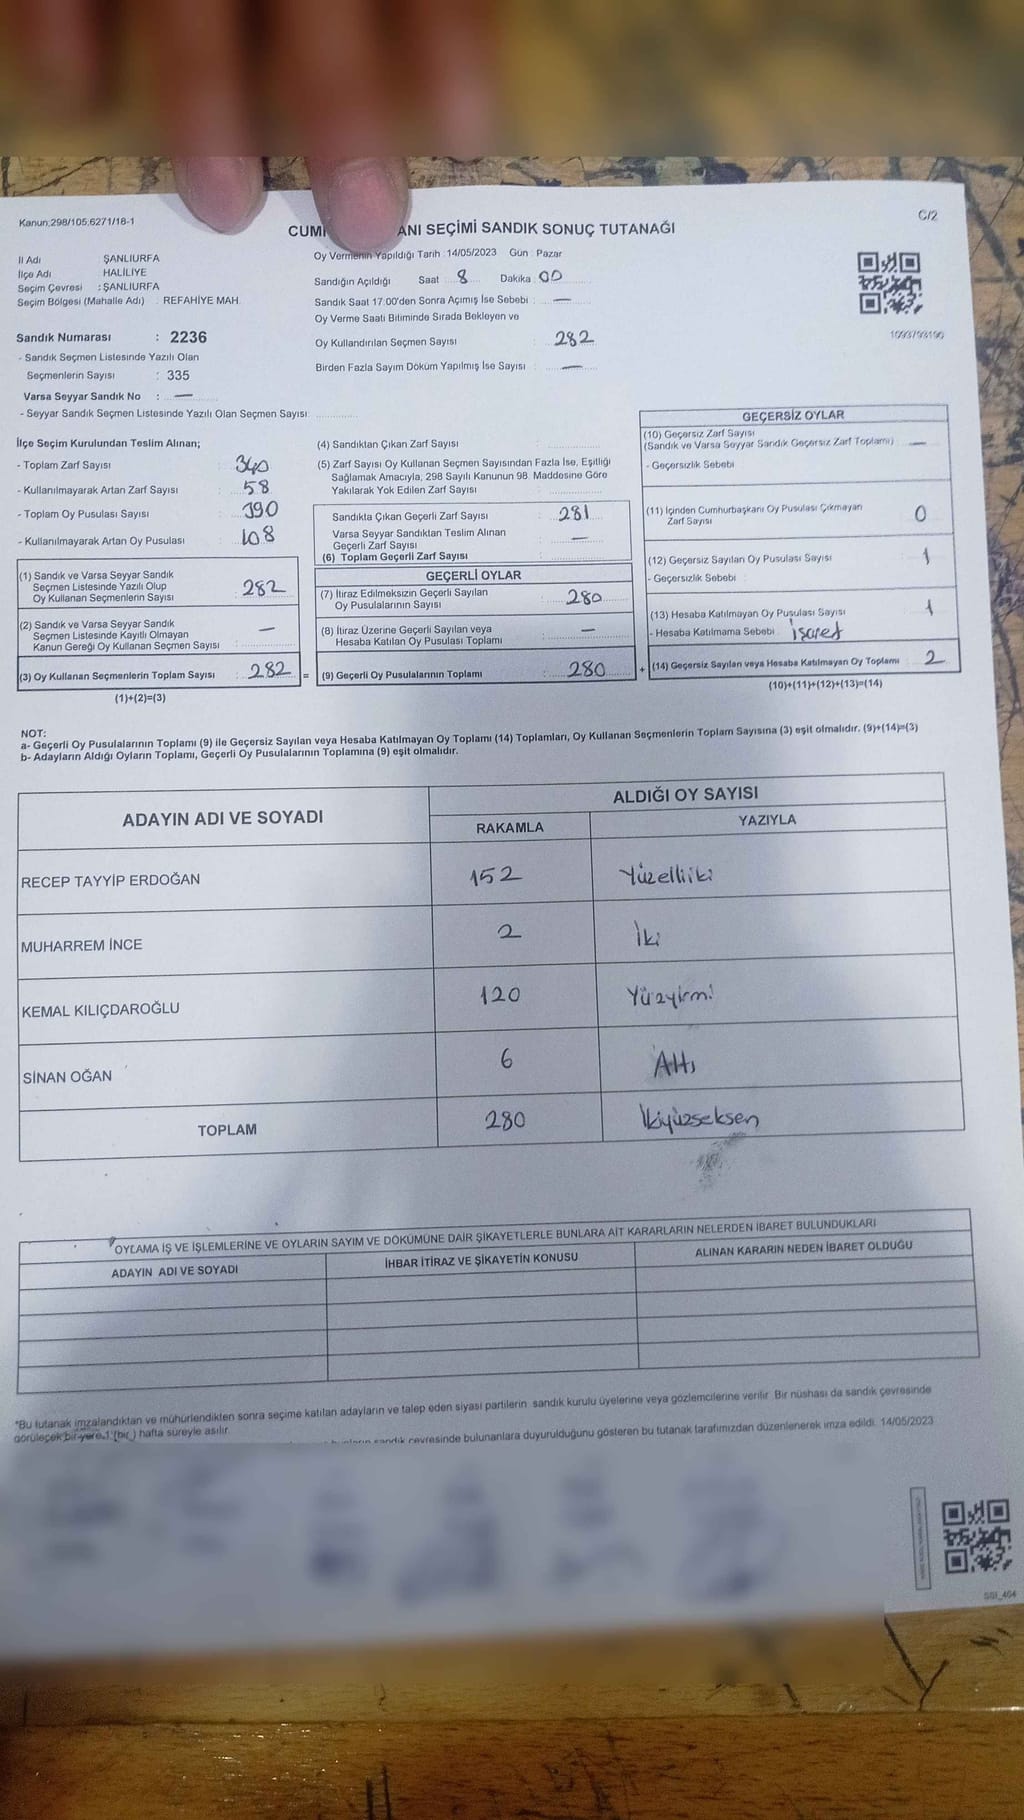 Kanun:298/105;6271/18-1
C/2
ANI SEÇİMİ SANDIK SONUÇ TUTANAĞI
İl Adı ŞANLIURFA
İlçe Adı HALİLİYE
Seçim Çevresi : ŞANLIURFA
Seçim Bölgesi (Mahalle Adı) : REFAHİYE MAH.
Oy Vermenin Yapıldığı Tarih : 14/05/2023 Gün : Pazar
Sandığın Açıldığı Saat 8 Dakika 00
Sandık Saat 17.00'den Sonra Açımış İse Sebebi : —
Oy Verme Saati Bitiminde Sırada Bekleyen ve
Oy Kullandırılan Seçmen Sayısı : 282
Birden Fazla Sayım Döküm Yapılmış İse Sayısı : —
1093793190
Sandık Numarası : 2236
- Sandık Seçmen Listesinde Yazılı Olan
Seçmenlerin Sayısı : 335
Varsa Seyyar Sandık No : —
- Seyyar Sandık Seçmen Listesinde Yazılı Olan Seçmen Sayısı:
İlçe Seçim Kurulundan Teslim Alınan;
- Toplam Zarf Sayısı : 340
- Kullanılmayarak Artan Zarf Sayısı : 58
- Toplam Oy Pusulası Sayısı : 390
- Kullanılmayarak Artan Oy Pusulası : 108
(1) Sandık ve Varsa Seyyar Sandık
Seçmen Listesinde Yazılı Olup
Oy Kullanan Seçmenlerin Sayısı : 282
(2) Sandık ve Varsa Seyyar Sandık
Seçmen Listesinde Kayıtlı Olmayan
Kanun Gereği Oy Kullanan Seçmen Sayısı : —
(3) Oy Kullanan Seçmenlerin Toplam Sayısı : 282 =
(1)+(2)=(3)
(4) Sandıktan Çıkan Zarf Sayısı :
(5) Zarf Sayısı Oy Kullanan Seçmen Sayısından Fazla İse, Eşitliği
Sağlamak Amacıyla, 298 Sayılı Kanunun 98. Maddesine Göre
Yakılarak Yok Edilen Zarf Sayısı :
Sandıkta Çıkan Geçerli Zarf Sayısı : 281
Varsa Seyyar Sandıktan Teslim Alınan
Geçerli Zarf Sayısı : —
(6) Toplam Geçerli Zarf Sayısı :
GEÇERLİ OYLAR
(7) İtiraz Edilmeksizin Geçerli Sayılan
Oy Pusulalarının Sayısı : 280
(8) İtiraz Üzerine Geçerli Sayılan veya
Hesaba Katılan Oy Pusulası Toplamı : —
(9) Geçerli Oy Pusulalarının Toplamı : 280 +
GEÇERSİZ OYLAR
(10) Geçersiz Zarf Sayısı
(Sandık ve Varsa Seyyar Sandık Geçersiz Zarf Toplamı) —
- Geçersizlik Sebebi
(11) İçinden Cumhurbaşkanı Oy Pusulası Çıkmayan
Zarf Sayısı 0
(12) Geçersiz Sayılan Oy Pusulası Sayısı 1
- Geçersizlik Sebebi :
(13) Hesaba Katılmayan Oy Pusulası Sayısı 1
- Hesaba Katılmama Sebebi : işaret
(14) Geçersiz Sayılan veya Hesaba Katılmayan Oy Toplamı 2
(10)+(11)+(12)+(13)=(14)
NOT:
a- Geçerli Oy Pusulalarının Toplamı (9) ile Geçersiz Sayılan veya Hesaba Katılmayan Oy Toplamı (14) Toplamları, Oy Kullanan Seçmenlerin Toplam Sayısına (3) eşit olmalıdır. (9)+(14)=(3)
b- Adayların Aldığı Oyların Toplamı, Geçerli Oy Pusulalarının Toplamına (9) eşit olmalıdır.
ADAYIN ADI VE SOYADI ALDIĞI OY SAYISI
RAKAMLA YAZIYLA
RECEP TAYYİP ERDOĞAN 152 Yüzelliiki
MUHARREM İNCE 2 İki
KEMAL KILIÇDAROĞLU 120 Yüzyirmi
SİNAN OĞAN 6 Altı
TOPLAM 280 İkiyüzseksen
OYLAMA İŞ VE İŞLEMLERİNE VE OYLARIN SAYIM VE DÖKÜMÜNE DAİR ŞİKAYETLERLE BUNLARA AİT KARARLARIN NELERDEN İBARET BULUNDUKLARI
ADAYIN ADI VE SOYADI İHBAR İTİRAZ VE ŞİKAYETİN KONUSU ALINAN KARARIN NEDEN İBARET OLDUĞU
*Bu tutanak imzalandıktan ve mühürlendikten sonra seçime katılan adayların ve talep eden siyasi partilerin sandık kurulu üyelerine veya gözlemcilerine verilir. Bir nüshası da sandık çevresinde
görülecek bir yere 1 (bir ) hafta süreyle asılır.
sandık çevresinde bulunanlara duyurulduğunu gösteren bu tutanak tarafımızdan düzenlenerek imza edildi. 14/05/2023
SSI_404